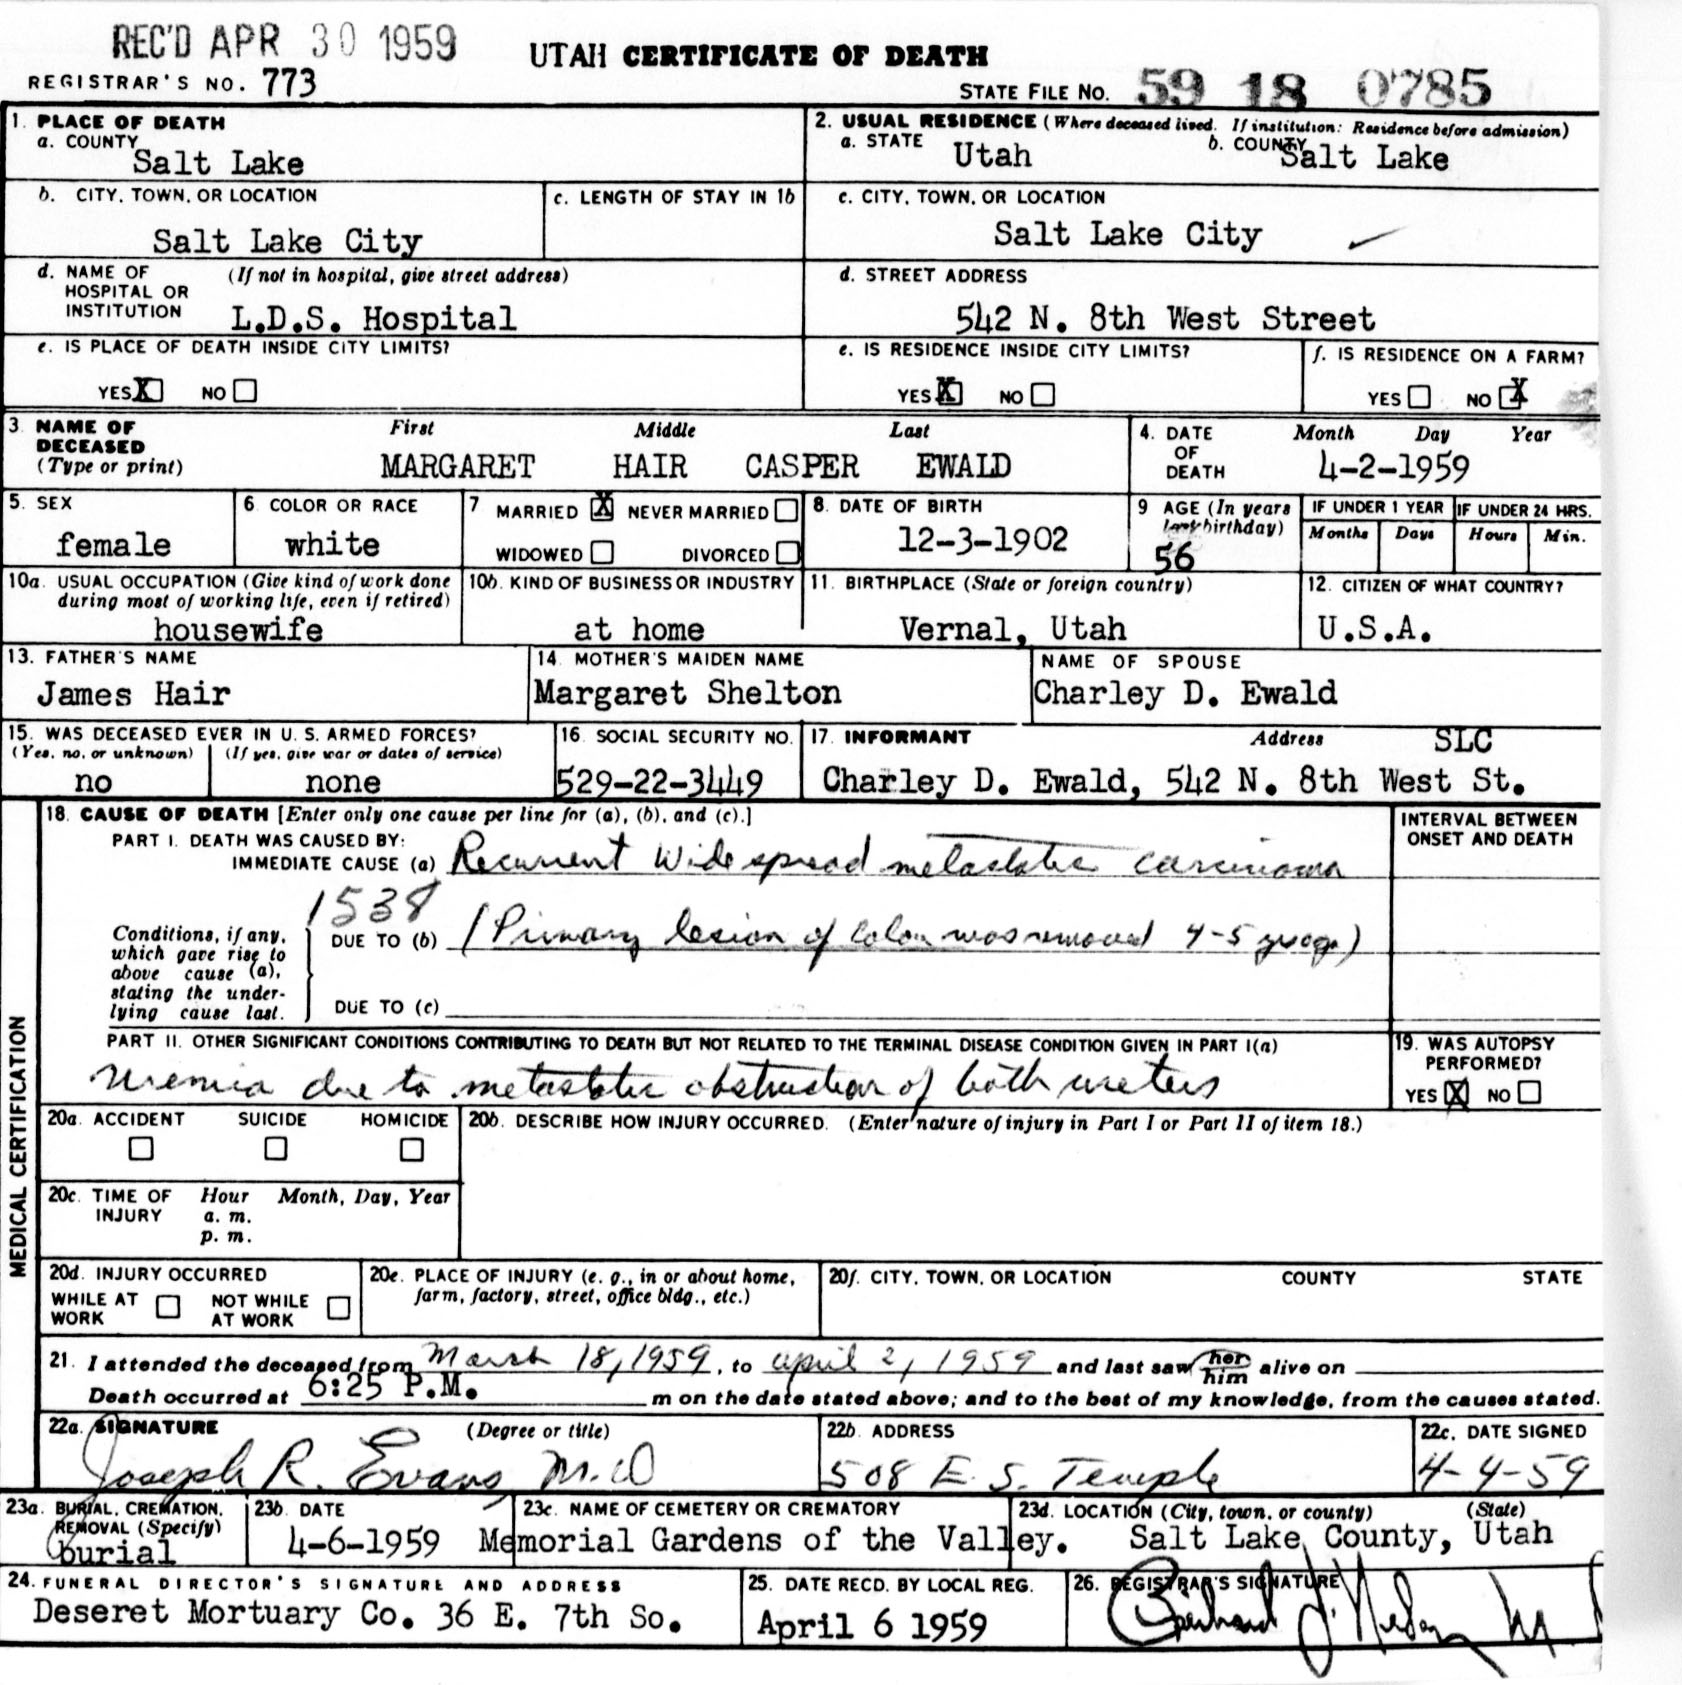 REC'D APR 30 1959
UTAH CERTIFICATE OF DEATH
REGISTRAR'S NO. 773
STATE FILE NO. 59 18 0785
1. PLACE OF DEATH
a. COUNTY
Salt Lake
2. USUAL RESIDENCE (Where deceased lived. If institution: Residence before admission)
a. STATE Utah b. COUNTY Salt Lake
b. CITY, TOWN, OR LOCATION
Salt Lake City
c. LENGTH OF STAY IN 1b
c. CITY, TOWN, OR LOCATION
Salt Lake City
d. NAME OF HOSPITAL OR INSTITUTION (If not in hospital, give street address)
L.D.S. Hospital
d. STREET ADDRESS
542 N. 8th West Street
e. IS PLACE OF DEATH INSIDE CITY LIMITS?
YES X NO
e. IS RESIDENCE INSIDE CITY LIMITS?
YES X NO
f. IS RESIDENCE ON A FARM?
YES NO X
3. NAME OF DECEASED (Type or print)
First Middle Last
MARGARET HAIR CASPER EWALD
4. DATE OF DEATH Month Day Year
4-2-1959
5. SEX
female
6. COLOR OR RACE
white
7 MARRIED X NEVER MARRIED
WIDOWED DIVORCED
8. DATE OF BIRTH
12-3-1902
9 AGE (In years last birthday)
56
IF UNDER 1 YEAR
Months Days
IF UNDER 24 HRS.
Hours Min.
10a. USUAL OCCUPATION (Give kind of work done during most of working life, even if retired)
housewife
10b. KIND OF BUSINESS OR INDUSTRY
at home
11. BIRTHPLACE (State or foreign country)
Vernal, Utah
12. CITIZEN OF WHAT COUNTRY?
U.S.A.
13. FATHER'S NAME
James Hair
14. MOTHER'S MAIDEN NAME
Margaret Shelton
NAME OF SPOUSE
Charley D. Ewald
15. WAS DECEASED EVER IN U. S. ARMED FORCES?
(Yes, no, or unknown) (If yes, give war or dates of service)
no none
16. SOCIAL SECURITY NO.
529-22-3449
17. INFORMANT Address SLC
Charley D. Ewald, 542 N. 8th West St.
18. CAUSE OF DEATH [Enter only one cause per line for (a), (b), and (c).]
INTERVAL BETWEEN ONSET AND DEATH
PART I. DEATH WAS CAUSED BY:
IMMEDIATE CAUSE (a) Recurrent Widespread metastatic carcinoma
1538
Conditions, if any, which gave rise to above cause (a), stating the underlying cause last.
DUE TO (b) (Primary lesion of colon was removed 4-5 yrs ago)
DUE TO (c)
PART II. OTHER SIGNIFICANT CONDITIONS CONTRIBUTING TO DEATH BUT NOT RELATED TO THE TERMINAL DISEASE CONDITION GIVEN IN PART I(a)
Uremia due to metastatic obstruction of both ureters
19. WAS AUTOPSY PERFORMED?
YES X NO
MEDICAL CERTIFICATION
20a. ACCIDENT SUICIDE HOMICIDE
20b. DESCRIBE HOW INJURY OCCURRED. (Enter nature of injury in Part I or Part II of item 18.)
20c. TIME OF INJURY Hour Month, Day, Year
a. m.
p. m.
20d. INJURY OCCURRED
WHILE AT WORK NOT WHILE AT WORK
20e. PLACE OF INJURY (e. g., in or about home, farm, factory, street, office bldg., etc.)
20f. CITY, TOWN, OR LOCATION COUNTY STATE
21. I attended the deceased from March 18, 1959, to april 2, 1959 and last saw her him alive on
Death occurred at 6:25 P.M. m on the date stated above; and to the best of my knowledge, from the causes stated.
22a. SIGNATURE (Degree or title)
Joseph R. Evans M.D
22b. ADDRESS
508 E. S. Temple
22c. DATE SIGNED
4-4-59
23a. BURIAL, CREMATION, REMOVAL (Specify)
burial
23b. DATE
4-6-1959
23c. NAME OF CEMETERY OR CREMATORY
Memorial Gardens of the Valley.
23d. LOCATION (City, town, or county) (State)
Salt Lake County, Utah
24. FUNERAL DIRECTOR'S SIGNATURE AND ADDRESS
Deseret Mortuary Co. 36 E. 7th So.
25. DATE RECD. BY LOCAL REG.
April 6 1959
26. REGISTRAR'S SIGNATURE